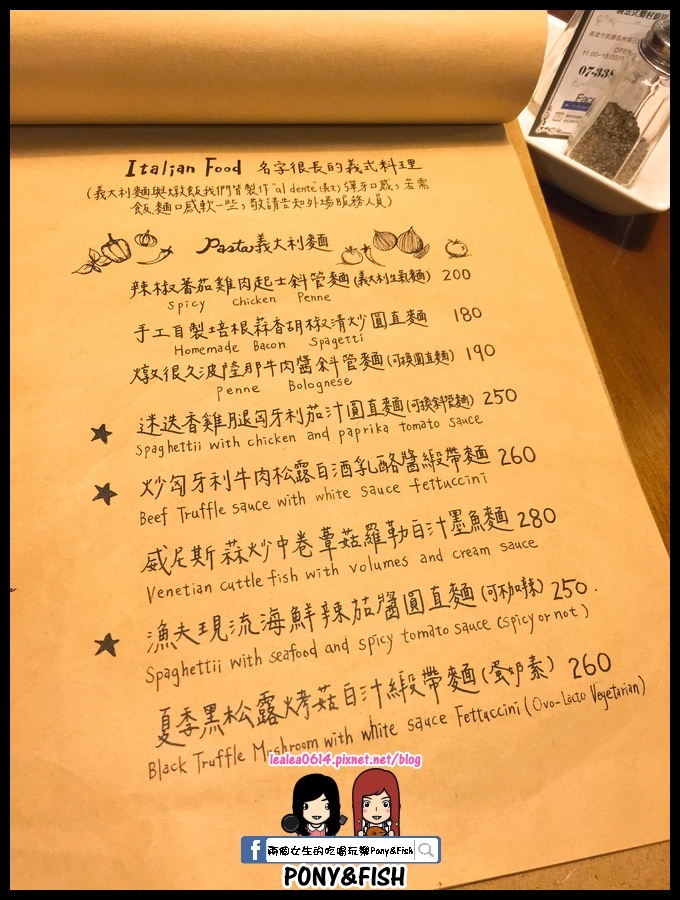 Italian Food 名字很長的義式料理
(義大利麵與燉飯我們皆製作"al dente"彈牙口感，若需
飯.麵口感軟一些，敬請告知外場服務人員)
Pasta 義大利麵
辣椒蕃茄雞肉起士斜管麵(義大利生氣麵) 200
Spicy Chicken Penne
手工自製培根蒜香胡椒清炒圓直麵 180
Homemade Bacon Spagetti
燉很久波隆那牛肉醬斜管麵(可換圓直麵) 190
Penne Bolognese
★ 迷迭香雞腿匈牙利茄汁圓直麵(可換斜管麵) 250
Spaghettii with chicken and paprika tomato sauce
★ 炒匈牙利牛肉松露白酒乳酪醬緞帶麵 260
Beef Truffle sauce with white sauce fettuccini
威尼斯蒜炒中卷蕈菇羅勒白汁墨魚麵 280
Venetian cuttle fish with volumes and cream sauce
★ 漁夫現流海鮮辣茄醬圓直麵(可不加辣) 250.
Spaghettii with seafood and spicy tomato sauce (spicy or not)
夏季黑松露烤菇白汁緞帶麵(蛋奶素) 260
Black Truffle Mushroom with white sauce Fettuccini (Ovo-Lacto Vegetarian)
11:00~15:00
OPEN
07-338
Face
lealea0614.pixnet.net/blog
f 兩個女生的吃喝玩樂Pony&Fish
PONY&FISH